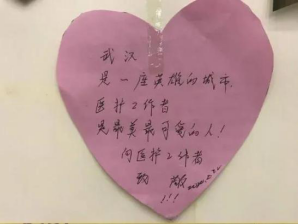 武汉
是一座英雄的城市.
医护工作者
是最美最可爱的人！
向医护工作者
致 敬
！！！